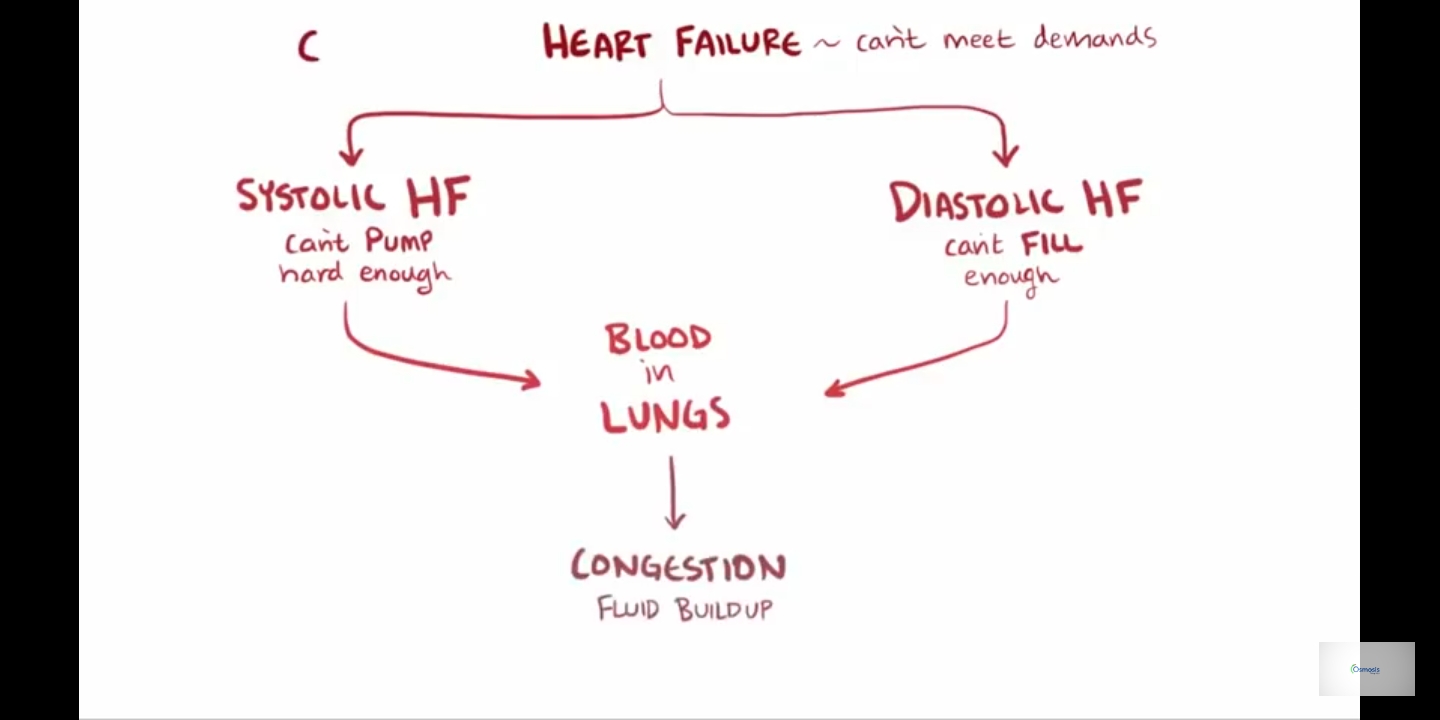 C
HEART FAILURE ~ can't meet demands
SYSTOLIC HF
can't PUMP
hard enough
DIASTOLIC HF
can't FILL
enough
BLOOD
in
LUNGS
CONGESTION
FLUID BUILDUP
Osmosis